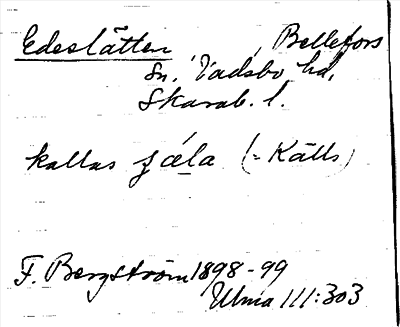 Edeslätten, Bellefors
Sn. Vadsbo hd,
Skarab. l.
kallas fåla (= Källs)
F. Bergström 1898-99
Ulma 111:303